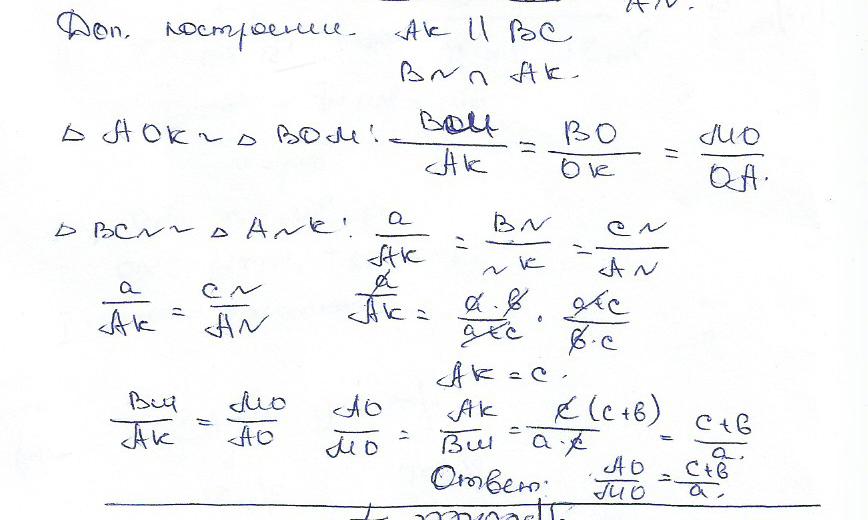 AN.
Доп. построение. AK || BC
BN ∩ AK.
△ AOK ~ △ BOM: BM/AK = BO/OK = MO/OA.
△ BCN ~ △ ANK: a/AK = BN/NK = CN/AN
a/AK = CN/AN a/AK = a·b/a+c · a+c/b·c
AK = c.
BM/AK = MO/AO AO/MO = AK/BM = c(c+b)/a·c = c+b/a.
Ответ: AO/MO = c+b/a.